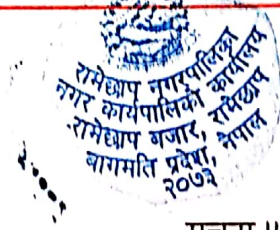 रामेछाप नगरपालिका
नगर कार्यपालिको कार्यालय
रामेछाप बजार, रामेछाप
बागमति प्रदेश, नेपाल
२०७३